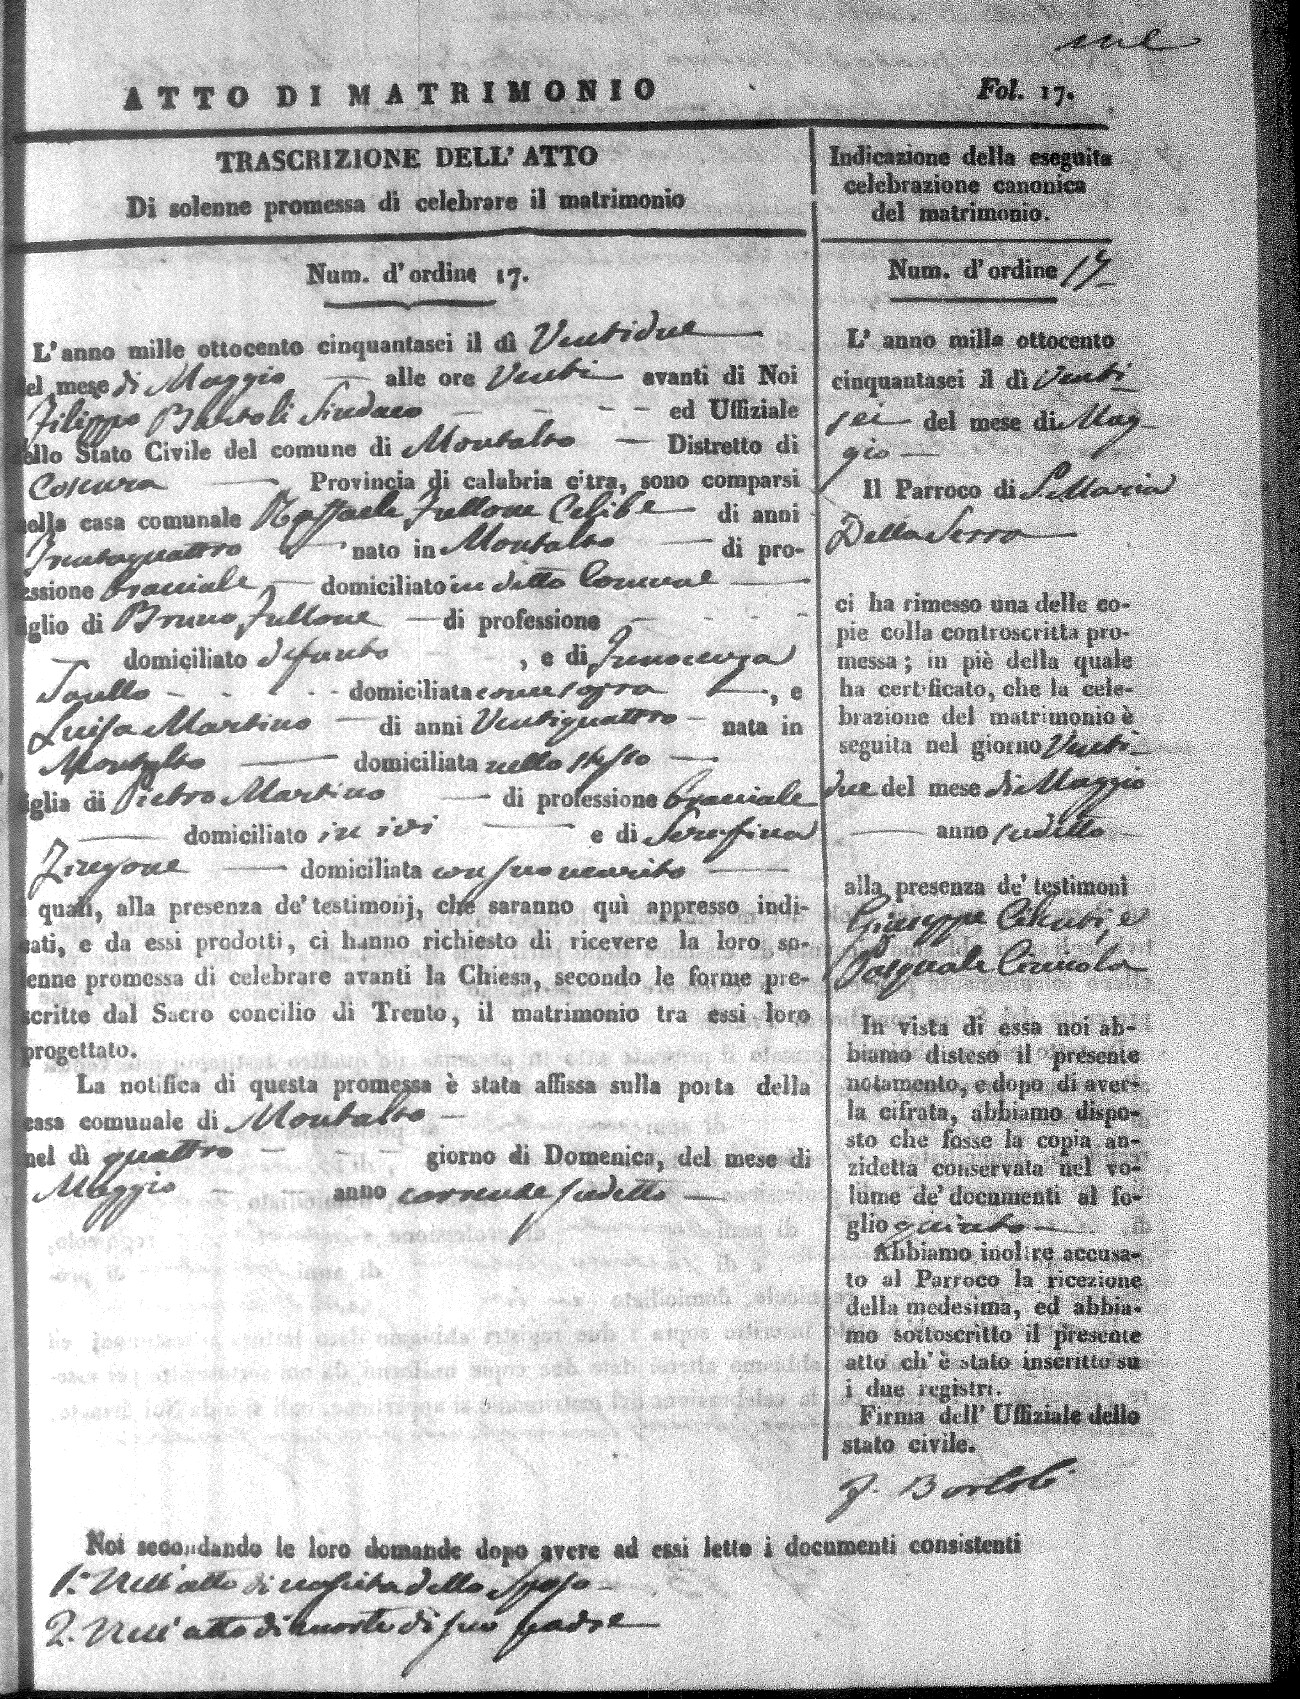 ATTO DI MATRIMONIO
Fol. 17.
TRASCRIZIONE DELL' ATTO
Di solenne promessa di celebrare il matrimonio
Num. d' ordine 17.
L'anno mille ottocento cinquantasei il dì Ventidue
el mese di Maggio alle ore Venti avanti di Noi
Filippo Bartoli Sindaco ed Uffiziale
ello Stato Civile del comune di Montalto Distretto di
Cosenza Provincia di calabria citra, sono comparsi
nella casa comunale Raffaele Fullone Celibe di anni
Trentaquattro nato in Montalto di pro-
essione bracciale domiciliato in detto Comune
iglio di Bruno Fullone di professione
domiciliato defunto , e di Innocenza
domiciliata come sopra , e
Luisa Martino di anni Ventiquattro nata in
Montalto domiciliata nello stesso
iglia di Pietro Martino di professione bracciale
domiciliato in ivi e di Serafina
domiciliata con suo marito
i quali, alla presenza de' testimonj, che saranno quì appresso indi-
cati, e da essi prodotti, ci hanno richiesto di ricevere la loro so-
lenne promessa di celebrare avanti la Chiesa, secondo le forme pre-
scritte dal Sacro concilio di Trento, il matrimonio tra essi loro
progettato.
La notifica di questa promessa è stata affissa sulla porta della
casa comunale di Montalto
nel dì quattro giorno di Domenica, del mese di
Maggio anno corrente sudetto
Indicazione della eseguita
celebrazione canonica
del matrimonio.
Num. d' ordine 17
L' anno mille ottocento
cinquantasei il dì Venti
sei del mese di Mag
gio
Il Parroco di S. Maria
Della Serra
ci ha rimesso una delle co-
pie colla controscritta pro-
messa; in piè della quale
ha certificato, che la cele-
brazione del matrimonio è
seguita nel giorno Venti
due del mese di Maggio
anno sudetto
alla presenza de' testimoni
Giuseppe e
Pasquale
In vista di essa noi ab-
biamo disteso il presente
notamento, e dopo di aver-
la cifrata, abbiamo dispo-
sto che fosse la copia an-
zidetta conservata nel vo-
lume de' documenti al fo-
glio quinto
Abbiamo inoltre accusa-
to al Parroco la ricezione
della medesima, ed abbia-
mo sottoscritto il presente
atto ch' è stato inscritto su
i due registri.
Firma dell' Uffiziale dello
stato civile.
F. Bartoli
Noi secondando le loro domande dopo avere ad essi letto i documenti consistenti
1.° Nell'atto di nascita dello Sposo
2. Nell'atto di morte di suo padre